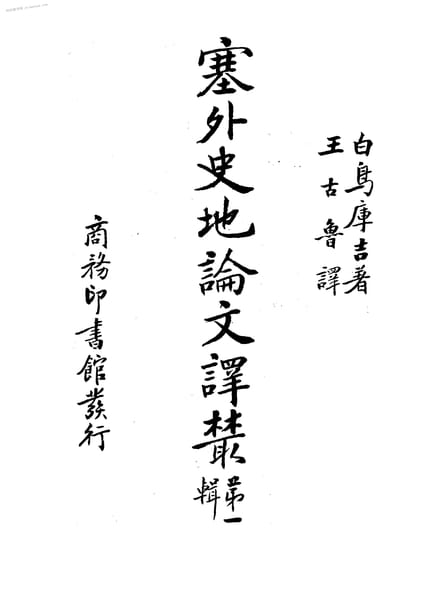 白鳥庫吉著
王古魯譯
塞外史地論文譯叢
第一
輯
商務印書館發行